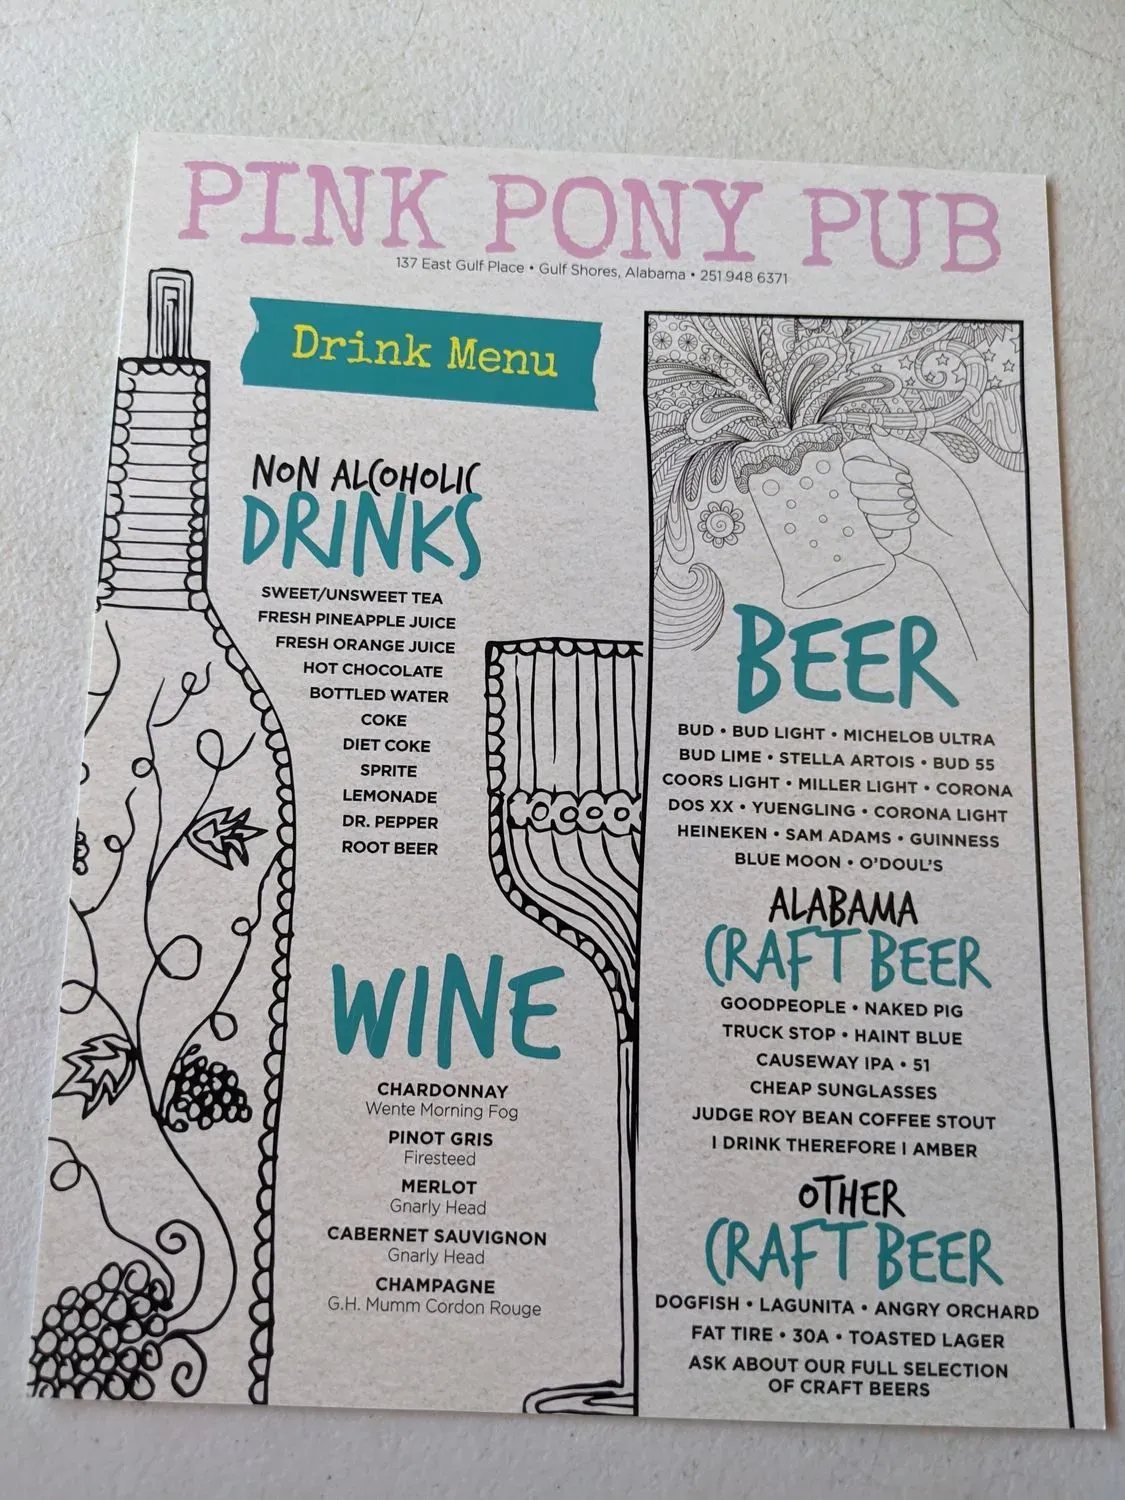 PINK PONY PUB
137 East Gulf Place • Gulf Shores, Alabama • 251 948 6371
Drink Menu
NON ALCOHOLIC
DRINKS
SWEET/UNSWEET TEA
FRESH PINEAPPLE JUICE
FRESH ORANGE JUICE
HOT CHOCOLATE
BOTTLED WATER
COKE
DIET COKE
SPRITE
LEMONADE
DR. PEPPER
ROOT BEER
WINE
CHARDONNAY
Wente Morning Fog
PINOT GRIS
Firesteed
MERLOT
Gnarly Head
CABERNET SAUVIGNON
Gnarly Head
CHAMPAGNE
G.H. Mumm Cordon Rouge
BEER
BUD • BUD LIGHT • MICHELOB ULTRA
BUD LIME • STELLA ARTOIS • BUD 55
COORS LIGHT • MILLER LIGHT • CORONA
DOS XX • YUENGLING • CORONA LIGHT
HEINEKEN • SAM ADAMS • GUINNESS
BLUE MOON • O'DOUL'S
ALABAMA
CRAFT BEER
GOODPEOPLE • NAKED PIG
TRUCK STOP • HAINT BLUE
CAUSEWAY IPA • 51
CHEAP SUNGLASSES
JUDGE ROY BEAN COFFEE STOUT
I DRINK THEREFORE I AMBER
OTHER
CRAFT BEER
DOGFISH • LAGUNITA • ANGRY ORCHARD
FAT TIRE • 30A • TOASTED LAGER
ASK ABOUT OUR FULL SELECTION
OF CRAFT BEERS